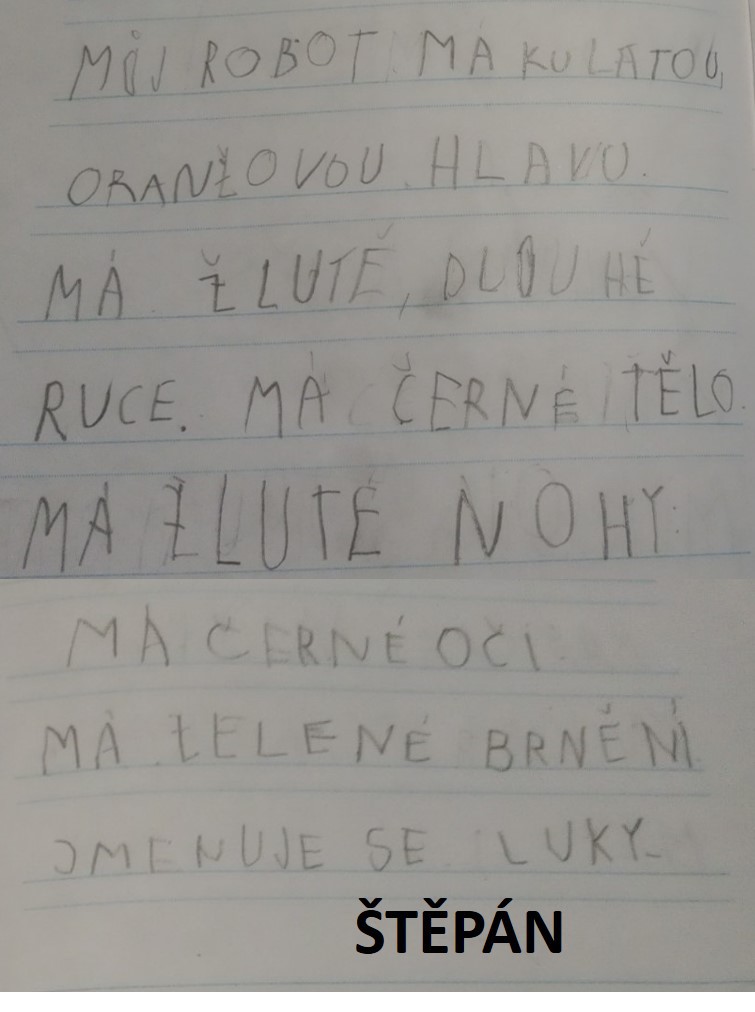 MŮJ ROBOT MÁ KULATOU,
ORANŽOVOU HLAVU.
MÁ ŽLUTÉ, DLOUHÉ
RUCE. MÁ ČERNÉ TĚLO.
MÁ ŽLUTÉ NOHY.
MÁ ČERNÉ OČI.
MÁ ZELENÉ BRNĚNÍ
JMENUJE SE LUKY.
ŠTĚPÁN